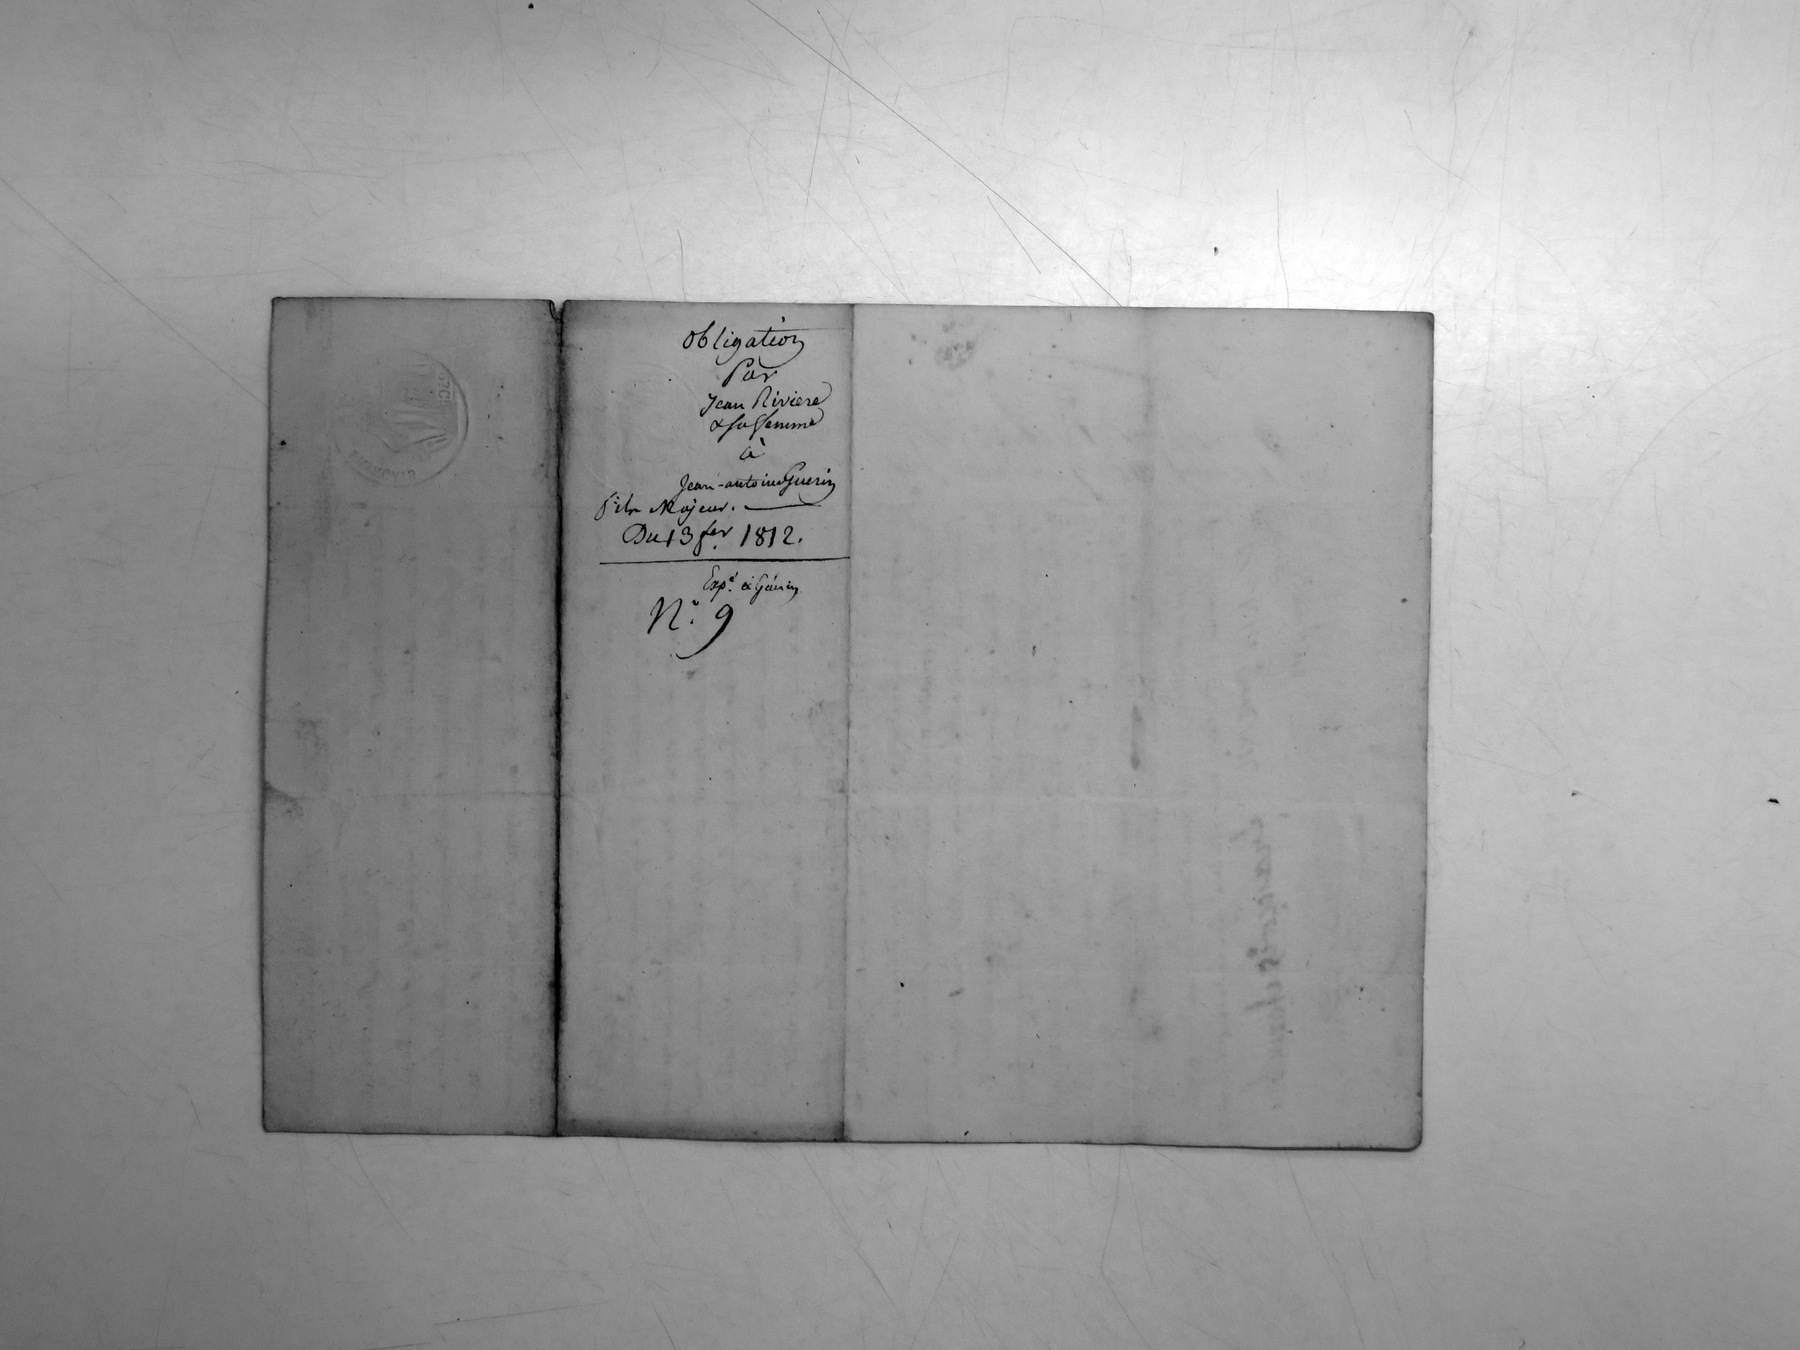 Obligation
Par
Jean Riviere
& sa femme
à
Jean-antoine Guerin
fils Majeur.
Du 13 fer 1812.
Expé. à Guérin
N°. 9